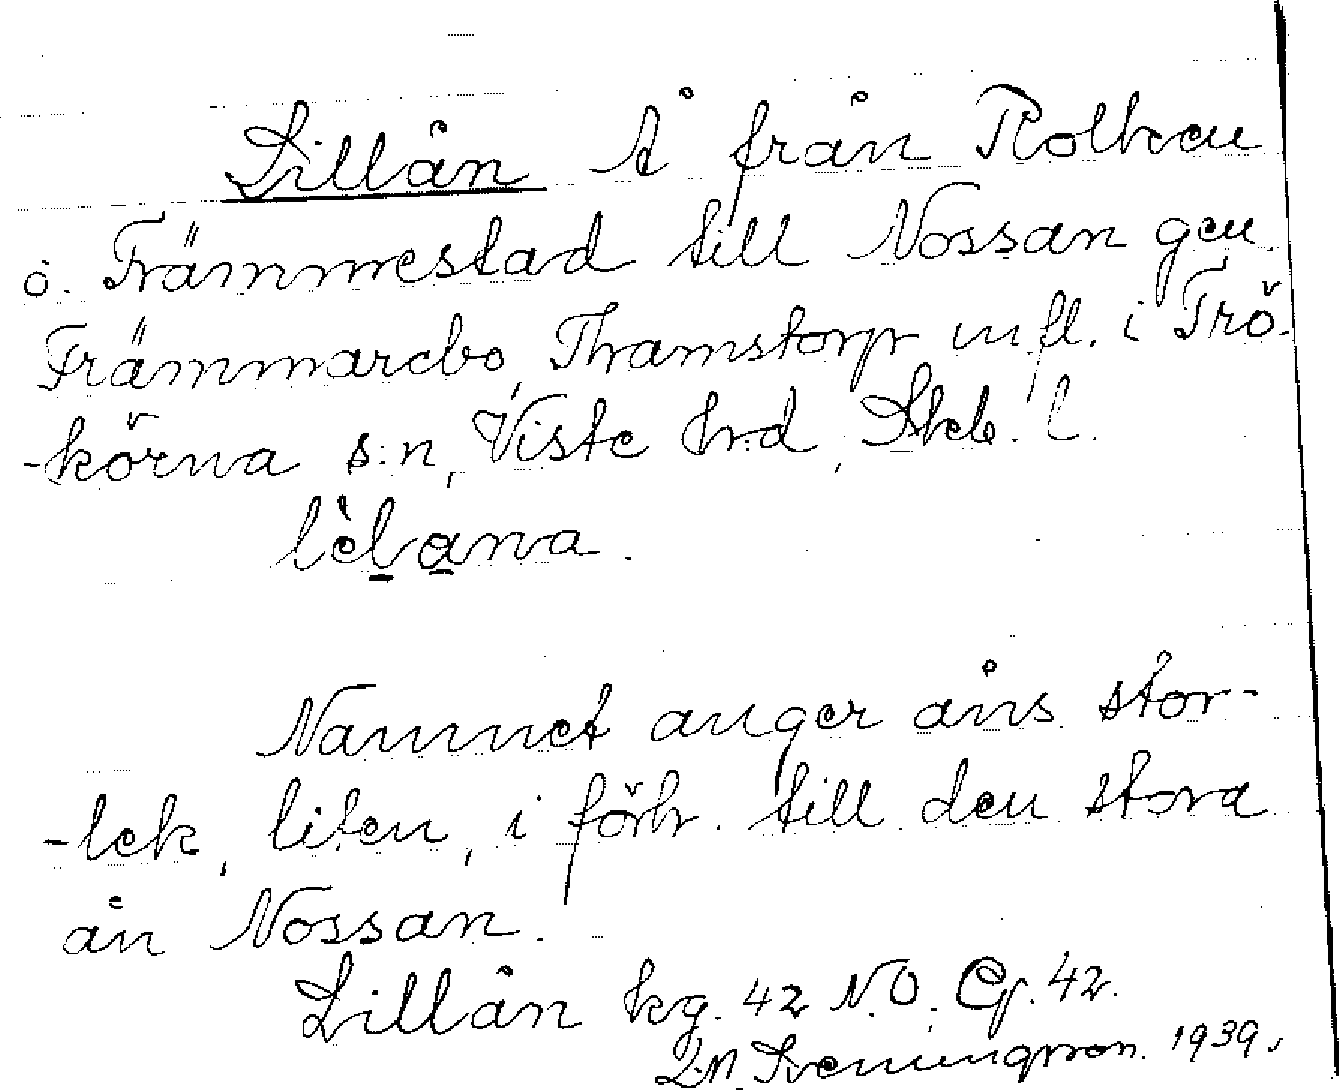 Lillån Å från Rolken
ö. Främmestad till Nossan gen
Främmarebo, Thamstorp m.fl. i Trö-
-körna s:n, Viste hrd, Skb. l.
lèlana.
Namnet anger åns stor-
-lek, liten, i förh. till den stora
ån Nossan.
Lillån kg. 42 N.O. Cp. 42.
Svenungsson. 1939.